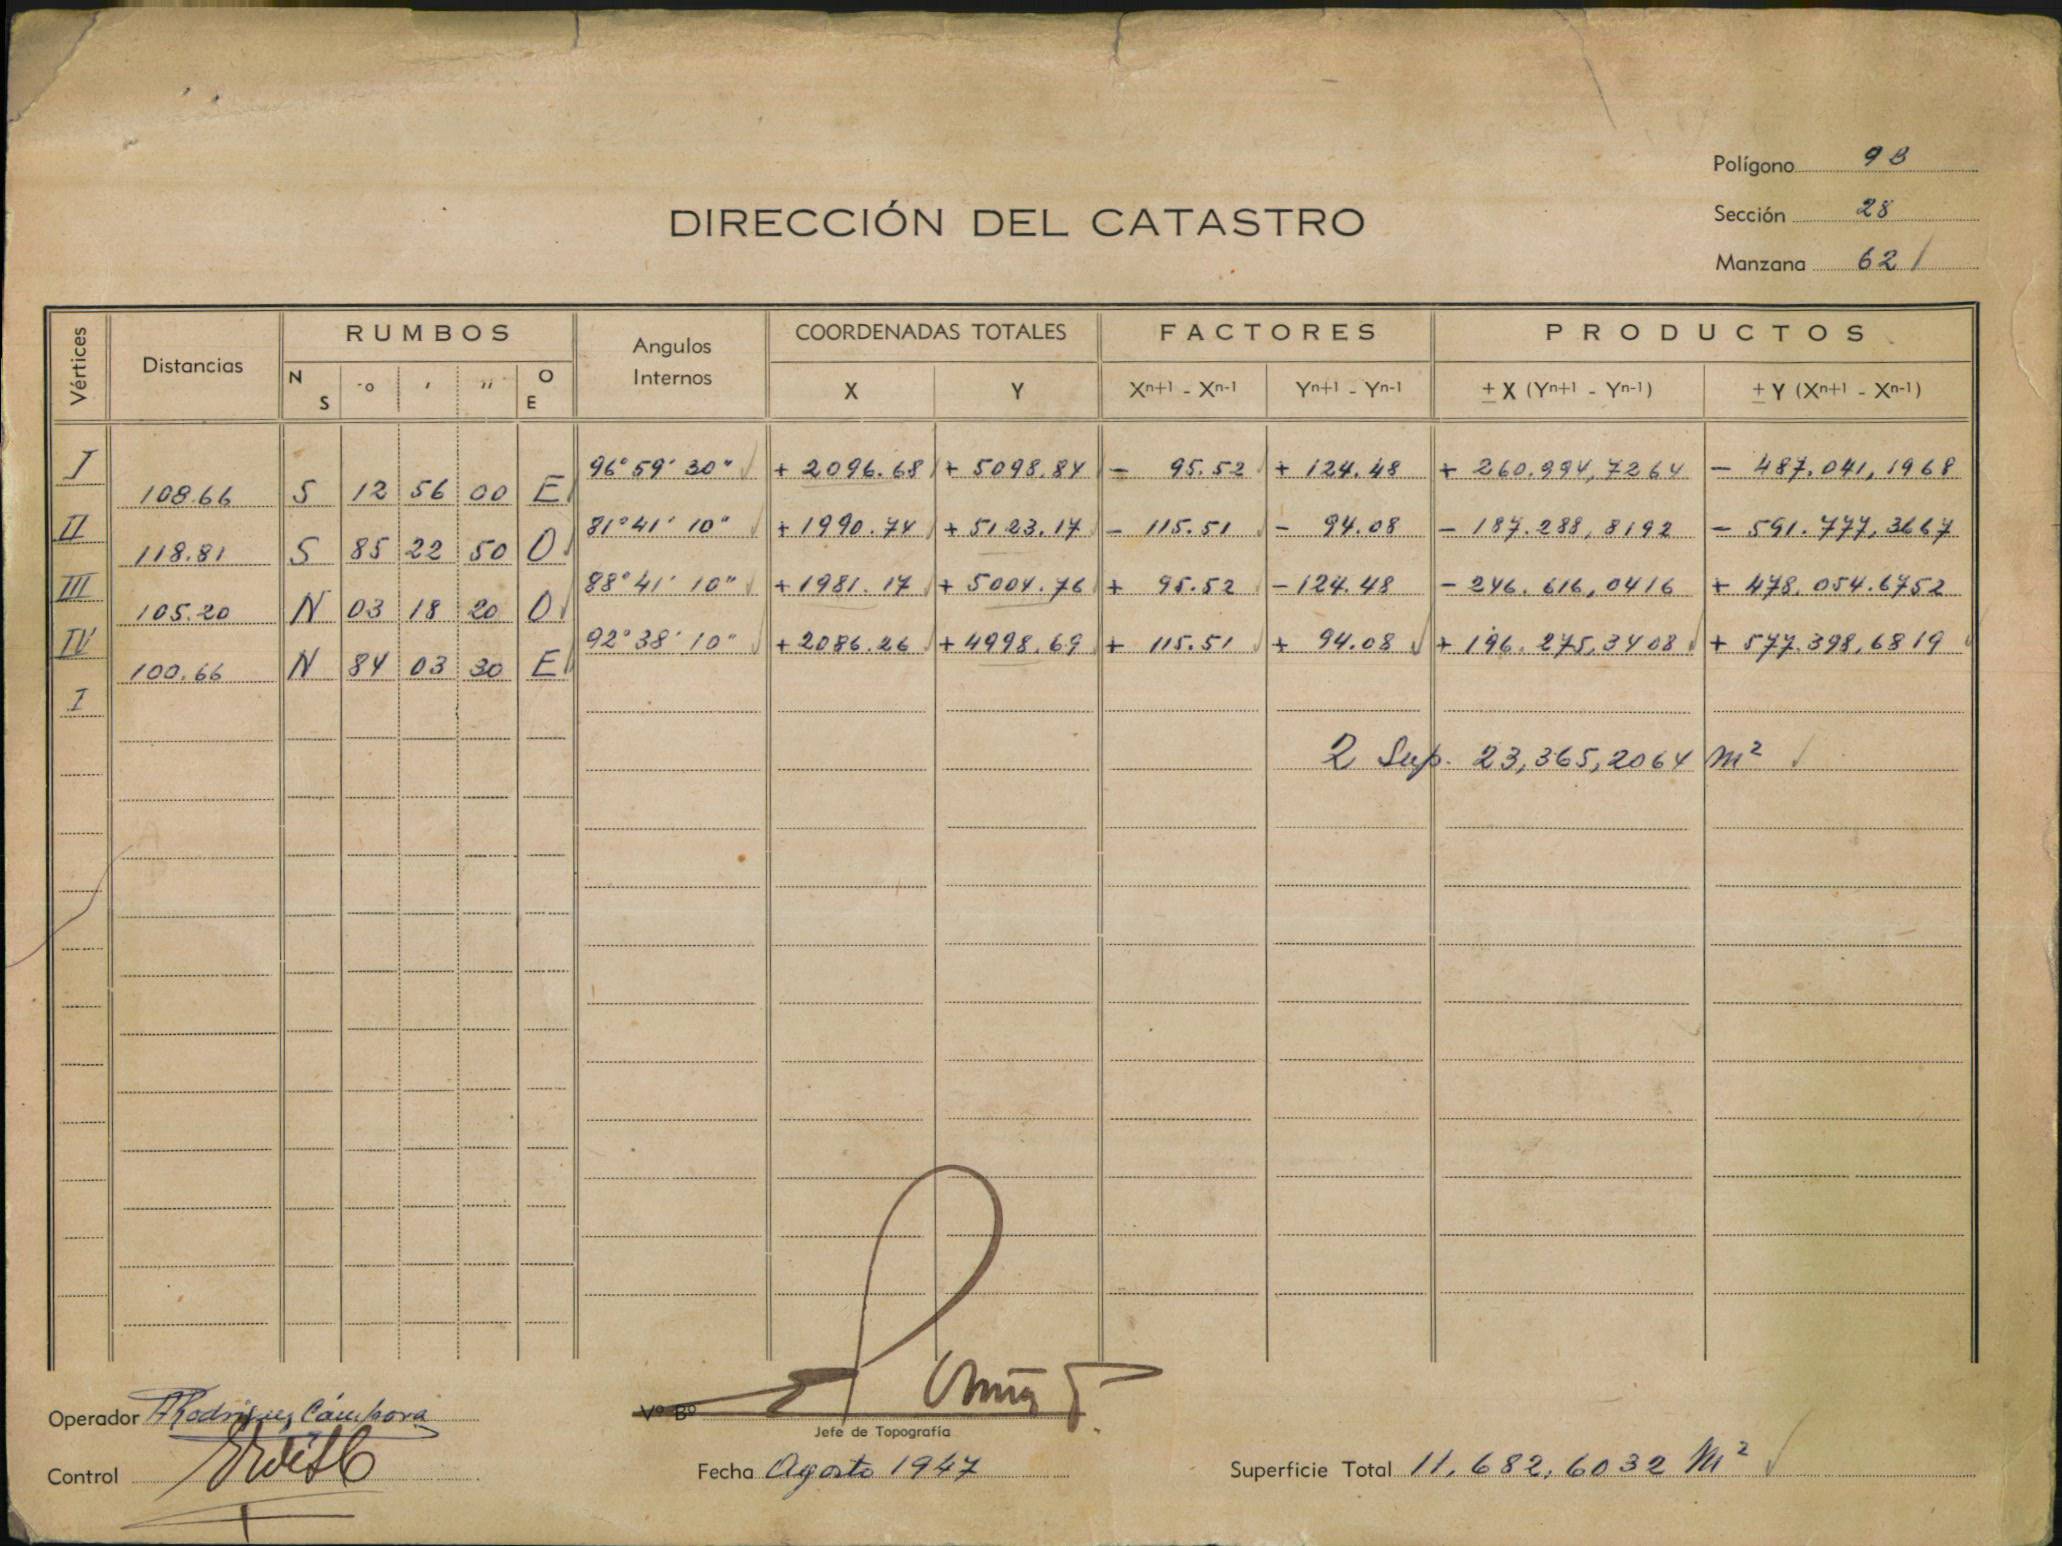 Polígono 9 B
DIRECCIÓN DEL CATASTRO
Sección 28
Manzana 621
Vértices Distancias RUMBOS Angulos Internos COORDENADAS TOTALES FACTORES PRODUCTOS
N S o ' " O E X Y Xn+1 - Xn-1 Yn+1 - Yn-1 ± X (Yn+1 - Yn-1) ± Y (Xn+1 - Xn-1)
I 96° 59' 30" + 2096.68 + 5098.84 - 95.52 + 124.48 + 260.994,7264 - 487.041,1968
108.66 S 12 56 00 E
II 81° 41' 10" + 1990.74 + 5123.17 - 115.51 - 94.08 - 187.288,8192 - 591.777,3667
118.81 S 85 22 50 O
III 88° 41' 10" + 1981.17 + 5004.76 + 95.52 - 124.48 - 246.616,0416 + 478.054.6752
105.20 N 03 18 20 O
IV 92° 38' 10" + 2086.26 + 4998.69 + 115.51 + 94.08 + 196.275,3408 + 577.398,6819
100.66 N 84 03 30 E
I
2 Sup. 23,365,2064 m²
Operador ARodriguez Cámpora
Vº Bº
Jefe de Topografía
Control
Fecha Agosto 1947
Superficie Total 11.682,6032 M²